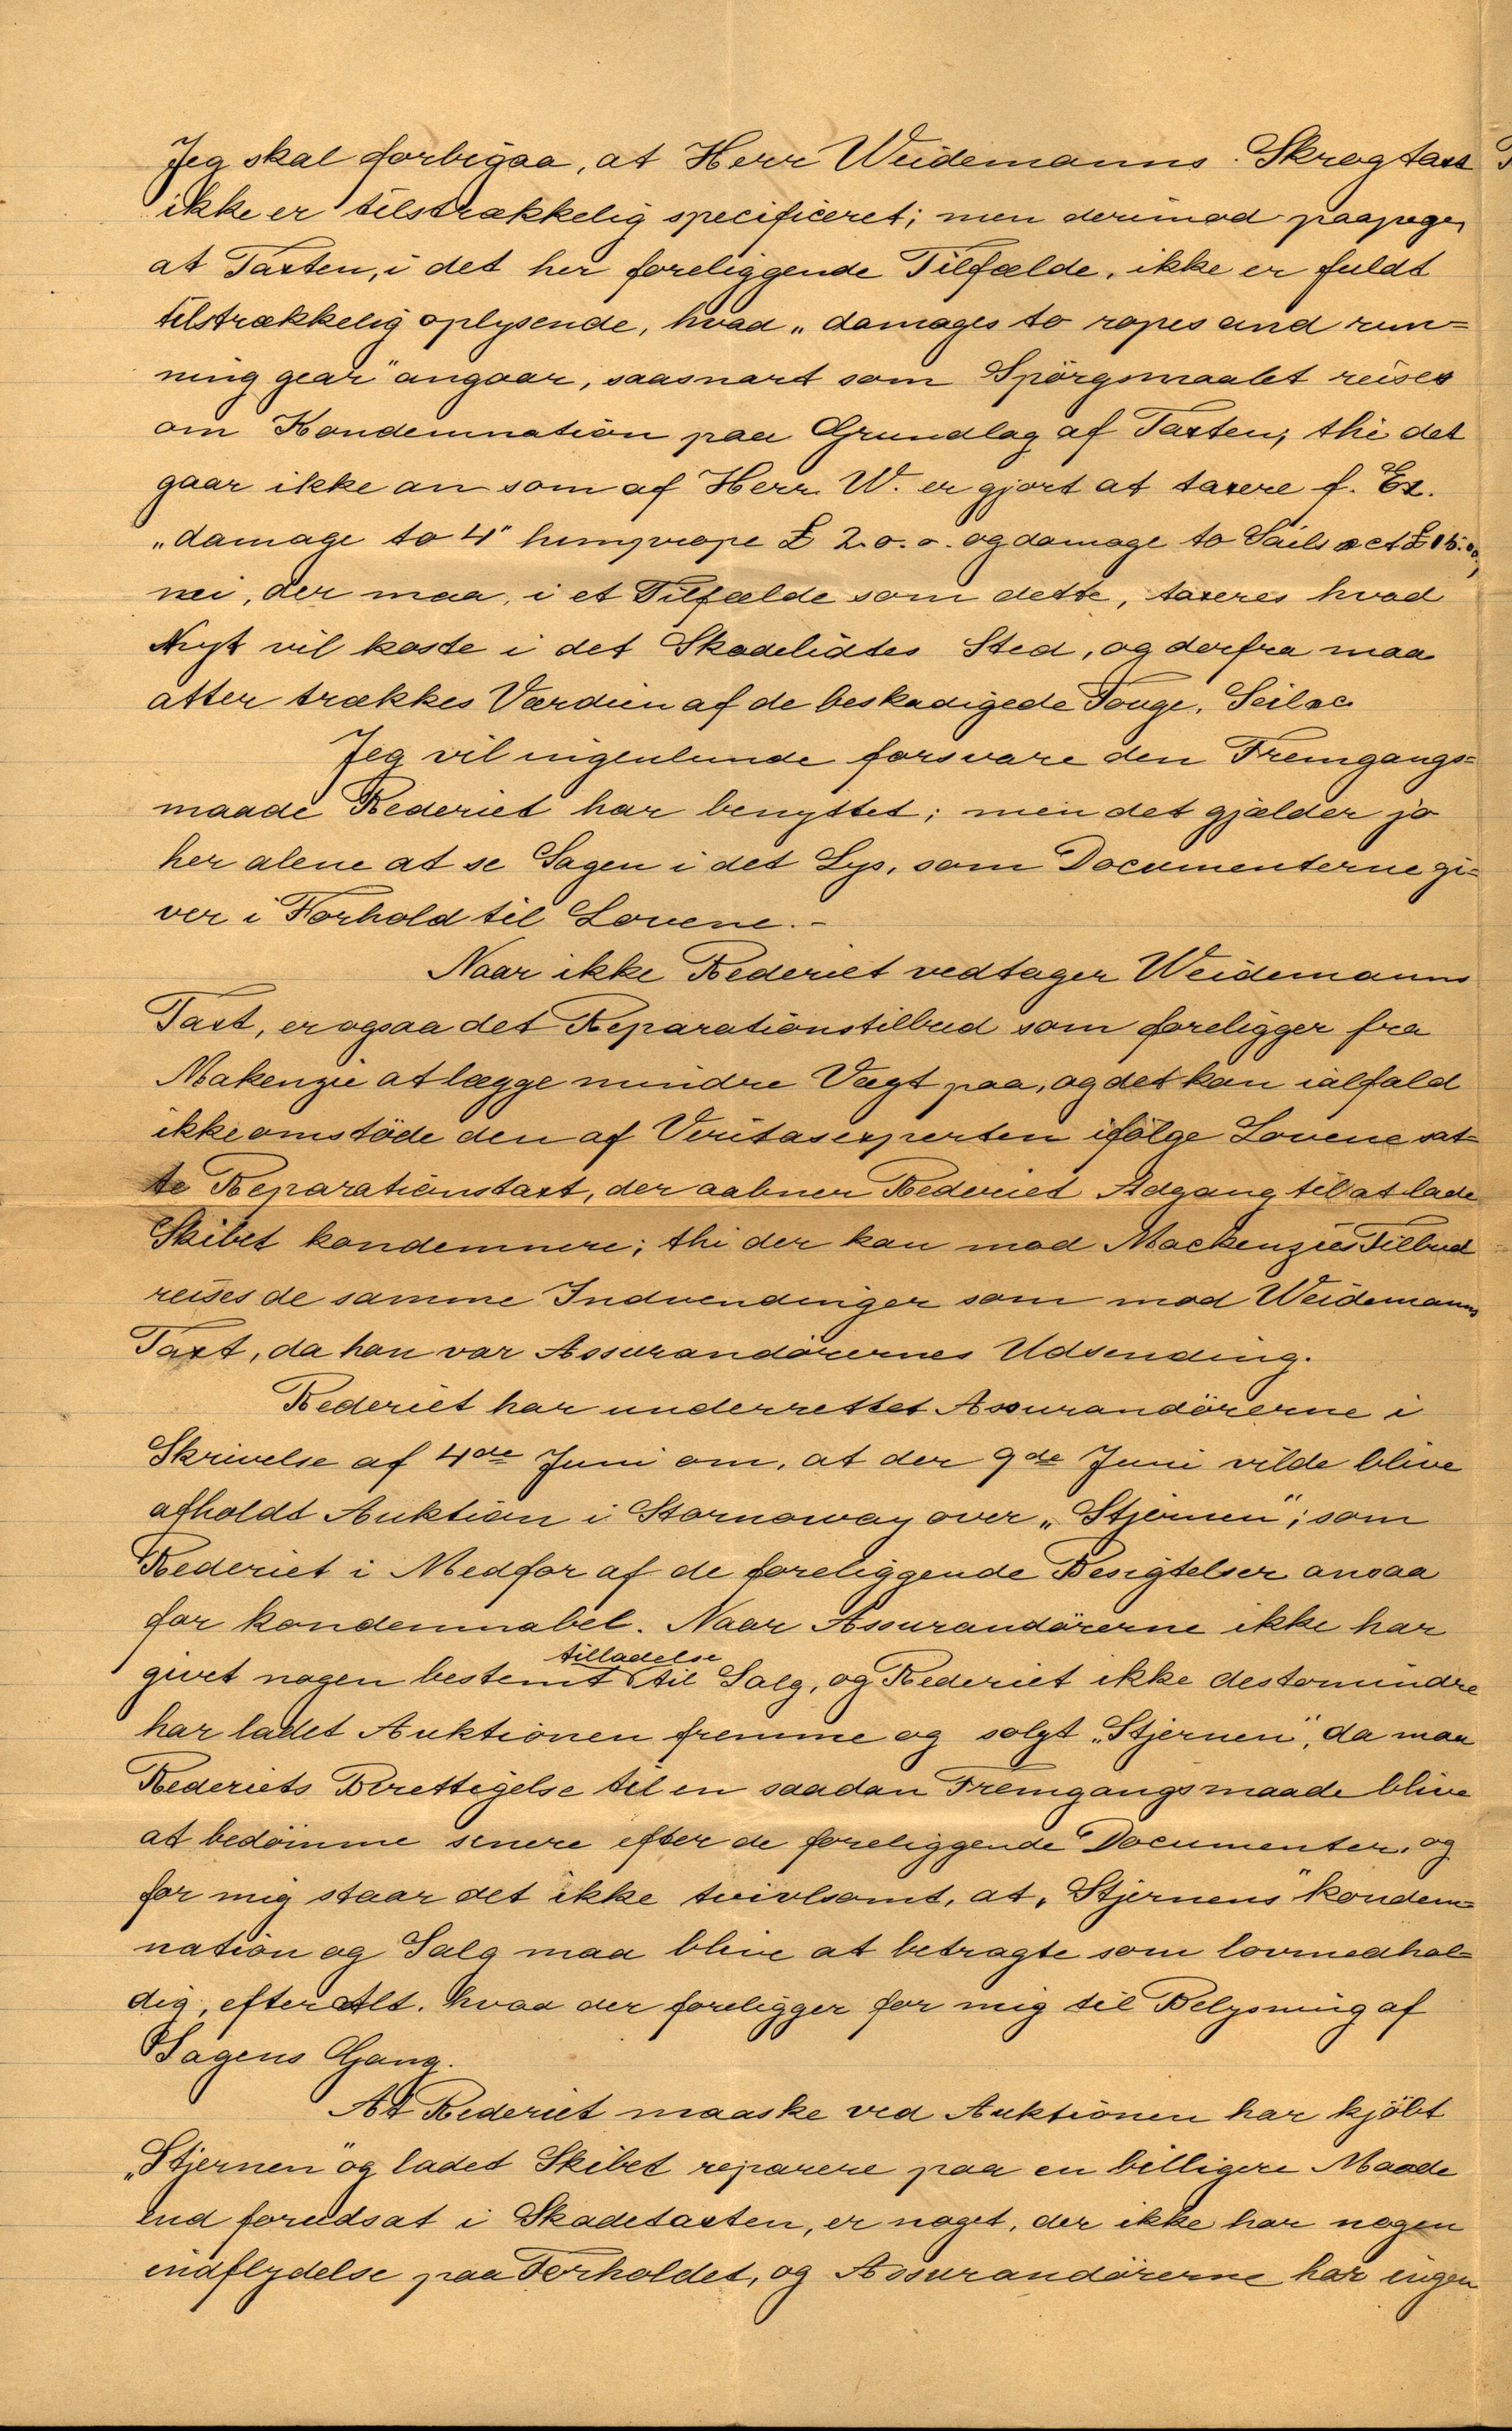 Jeg skal forbigaa, at Herr Weidemanns Skrogtaxt
ikke er tilstrækkelig specificeret; men derimod paapege,
at Taxten, i det her foreliggende Tilfælde, ikke er fuldt
tilstrækkelig oplysende, hvad „damages to ropes and run=
ning gear" angaar, saasnart som Spörgsmaalet reises
om Kondemnation paa Grundlag af Taxten; thi det
gaar ikke an som af Herr W. er gjort at taxere f. Ex.
„damage to 4" hemprope £ 2.o.o. og damage to Sails &c £ 15.oo,
nei, der maa, i et Tilfælde som dette, taxeres hvad
Nyt vil koste i det Skadelidtes Sted, og derfra maa
atter trækkes Værdien af de beskadigede Touge, Seil &c
Jeg vil ingenlunde forsvare den Fremgangs=
maade Rederiet har benyttet; men det gjælder jo
her alene at se Sagen i det Lys, som Documenterne gi=
ver i Forhold til Lovene.-
Naar ikke Rederiet vedtager Weidemanns
Taxt, er ogsaa det Reparationstilbud som foreligger fra
Makenzie at lægge mindre Vægt paa, og det kan ialfald
ikke omstöde den af Veritasexperten ifölge Lovene sat=
te Reparationstaxt, der aabner Rederiet Adgang til at lade
Skibet kondemnere; thi der kan mod Mackenzies Tilbud
reises de samme Indvendinger som mod Weidemanns
Taxt, da han var Assurandörernes Udsending.
Rederiet har underrettet Assurandörerne i
Skrivelse af 4de Juni om, at der 9de Juni vilde blive
afholdt Auktion i Stornoway over „Stjernen"; som
Rederiet i Medfør af de foreliggende Besigtelser ansaa
for kondemnabel. Naar Assurandörerne ikke har
givet nogen bestemt tilladelse til Salg, og Rederiet ikke destomindre
har ladet Auktionen fremme og solgt „Stjernen", da maa
Rederiets Berettigelse til en saadan Fremgangsmaade blive
at bedömme senere efter de foreliggende Documenter, og
for mig staar det ikke tvivlsomt, at „Stjernens" kondem=
nation og Salg maa blive at betragte som lovmedhol=
dig, efter Alt, hvad der foreligger for mig til Belysning af
Sagens Gang.
At Rederiet maaske ved Auktionen har kjöbt
„Stjernen" og ladet Skibet reparere paa en billigere Maade
end forudsat i Skadetaxten, er noget, der ikke har nogen
indflydelse paa Forholdet, og Assurandörerne har ingen